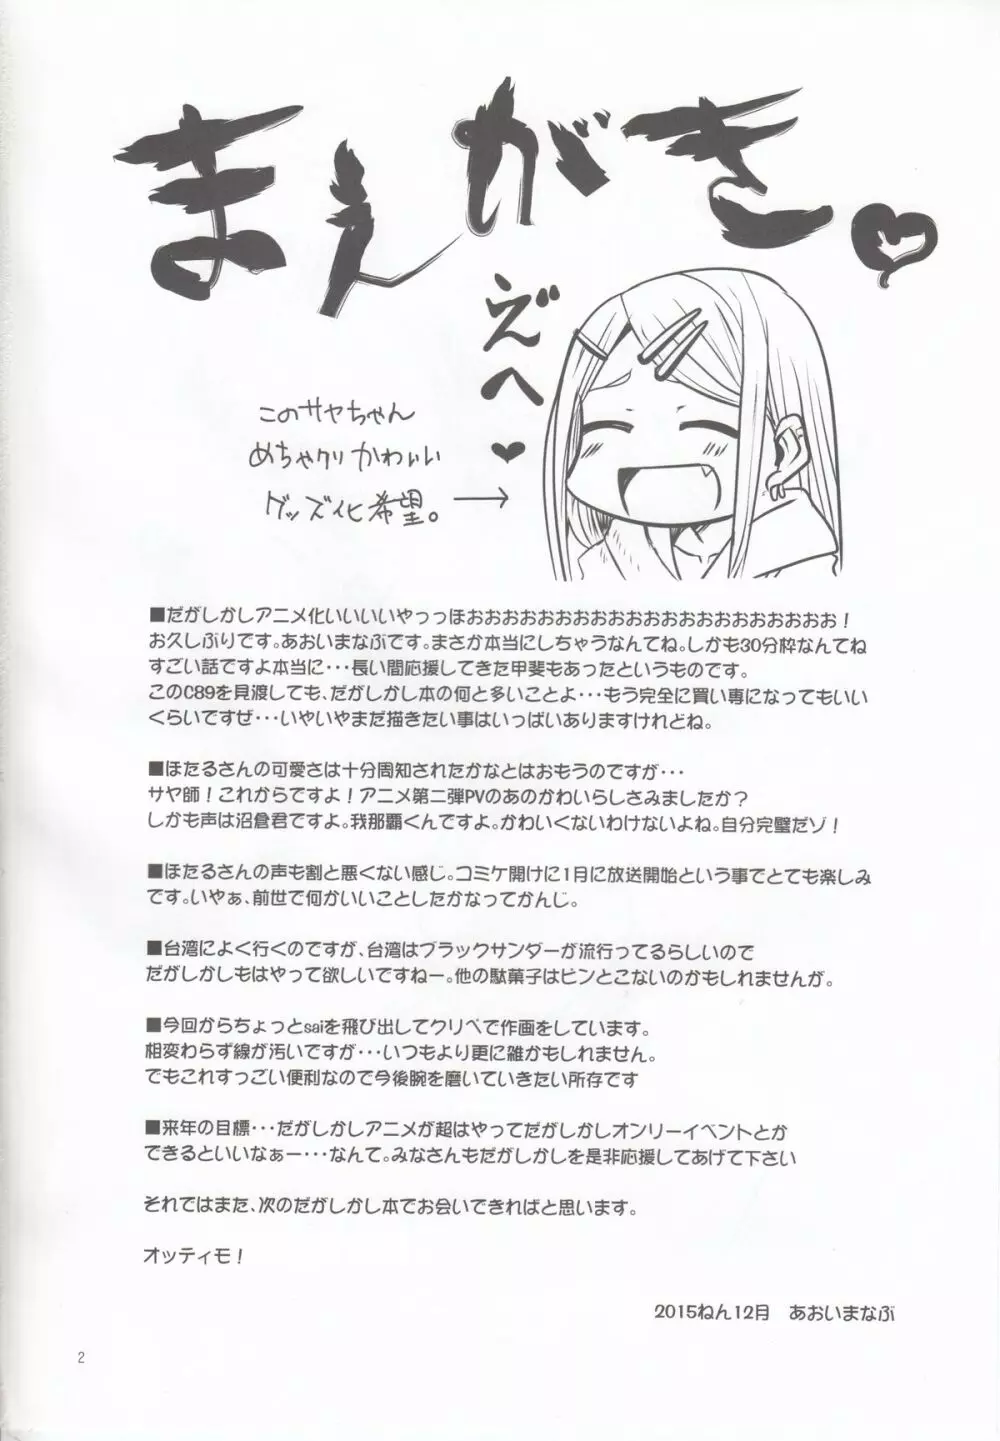 まえがき♥
えへ♥
このサヤちゃん
めちゃクリかわいい
グッズ化希望。
■だがしかしアニメ化いいいいいやっっほおおおおおおおおおおおおおおおおおおおおお！
お久しぶりです。あおいまなぶです。まさか本当にしちゃうなんてね。しかも30分枠なんてね
すごい話ですよ本当に・・・長い間応援してきた甲斐もあったというものです。
このC89を見渡しても、だがしかし本の何と多いことよ・・・もう完全に買い専になってもいい
くらいですぜ・・・いやいやまだ描きたい事はいっぱいありますけれどね。
■ほたるさんの可愛さは十分周知されたかなとはおもうのですが・・・
サヤ師！これからですよ！アニメ第二弾PVのあのかわいらしさみましたか？
しかも声は沼倉君ですよ。我那覇くんですよ。かわいくないわけないよね。自分完璧だゾ！
■ほたるさんの声も割と悪くない感じ。コミケ開けに1月に放送開始という事でとても楽しみ
です。いやぁ、前世で何かいいことしたかなってかんじ。
■台湾によく行くのですが、台湾はブラックサンダーが流行ってるらしいので
だがしかしもはやって欲しいですねー。他の駄菓子はピンとこないのかもしれませんが。
■今回からちょっとsaiを飛び出してクリペで作画をしています。
相変わらず線が汚いですが・・・いつもより更に雑かもしれません。
でもこれすっごい便利なので今後腕を磨いていきたい所存です
■来年の目標・・・だがしかしアニメが超はやってだがしかしオンリーイベントとか
できるといいなぁー・・・なんて。みなさんもだがしかしを是非応援してあげて下さい
それではまた、次のだがしかし本でお会いできればと思います。
オッティモ！
2015ねん12月　あおいまなぶ
2